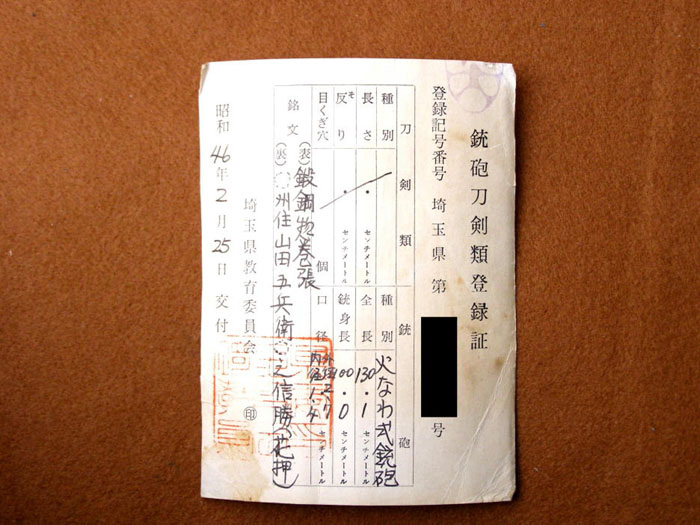 銃砲刀剣類登録証
登録記号番号 埼玉県 第 号
刀剣類
種別
長さ ・ センチメートル
反り そ ・ センチメートル
目くぎ穴 個
銃砲
種別 火なわ式銃砲
全長 130・1 センチメートル
銃身長 100・0 センチメートル
口径 外径2・7 内径1・4 センチメートル
銘文 (表)鍛鋼惣巻張
(裏)○州住山田五兵衛○之信勝(花押)
埼玉県教育委員会 印
昭和46年2月25日交付